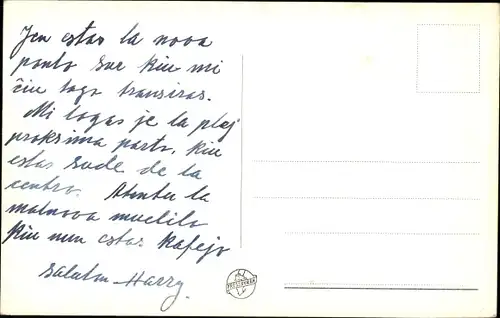 Jen estas la nova
ponto sur kiu mi
ĉiu tage transiras.
Mi logas je la plej
proksima parto, kiu
estas sude de la
centro. Atentu la
malnova muelilo
kiu nun estas kafejo
Saluton - Harry.